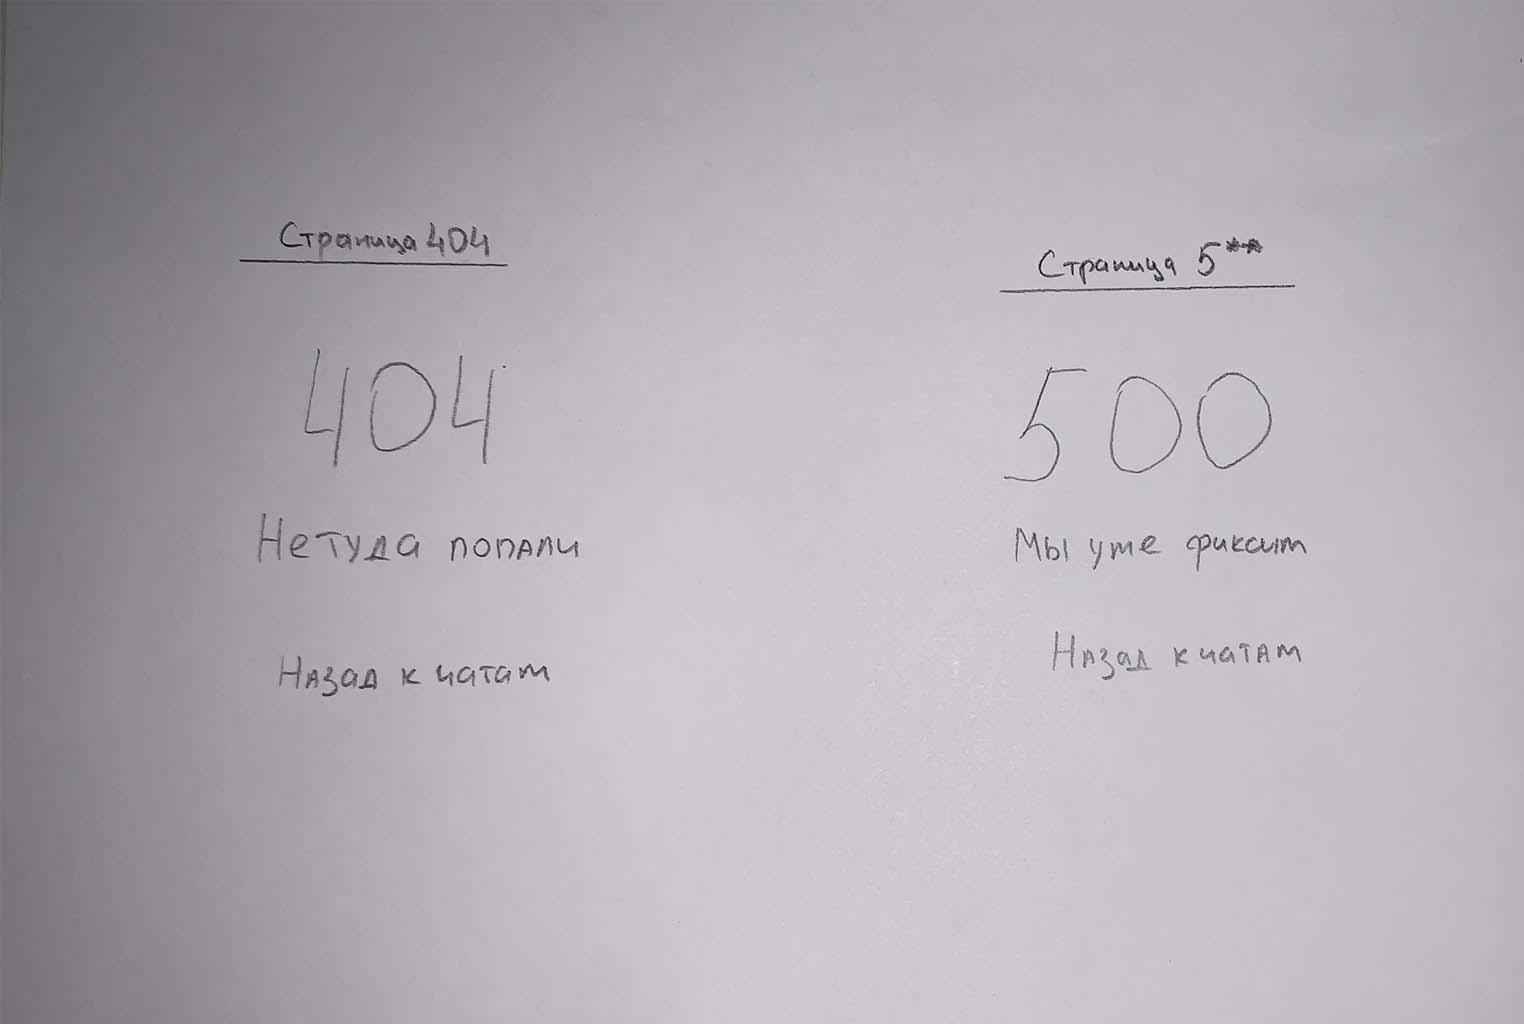 Страница 404
404
Не туда попали
Назад к чатам
Страница 5**
500
Мы уже фиксим
Назад к чатам